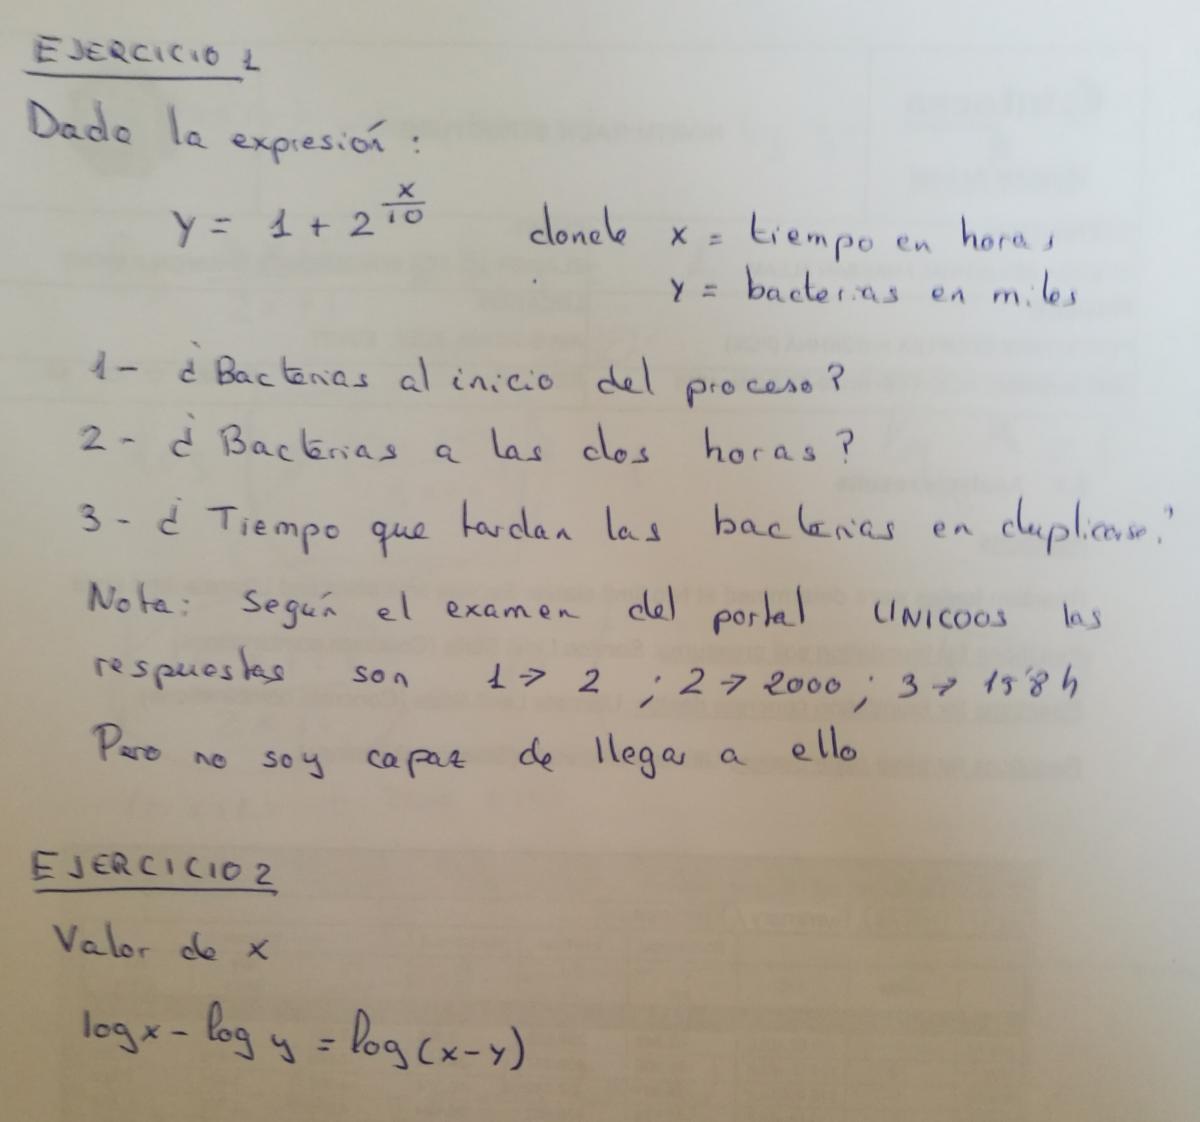 EJERCICIO 1
Dada la expresión:
y = 1 + 2^(x/10) donde x = tiempo en horas
y = bacterias en miles
1- ¿Bacterias al inicio del proceso?
2- ¿Bacterias a las dos horas?
3- ¿Tiempo que tardan las bacterias en duplicarse?
Nota: Según el examen del portal UNICOOS las
respuestas son 1→ 2 ; 2→ 2000 ; 3→ 15'8 h
Pero no soy capaz de llegar a ello
EJERCICIO 2
Valor de x
log x - log y = log (x-y)